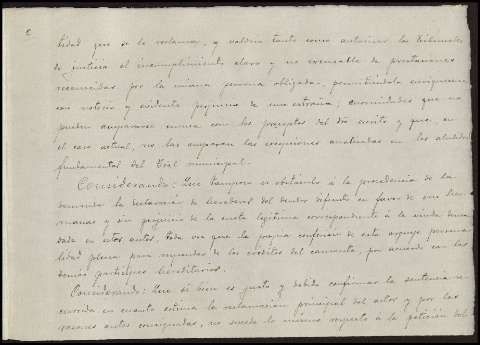 tidad que se le reclama, y valdría tanto como autorizar los Tribunales
de justicia el incumplimiento claro y no excusable de prestaciones
reconocidas por la misma persona obligada, permitiéndola enriquecerse
con notorio y evidente perjuicio de una extraña; enormidades que no
pueden ampararse nunca con los preceptos del dro escrito y que, en
el caso actual, no las amparan las excepciones analizadas en los
fundamental del Tral municipal.
Considerando: Que tampoco es obstáculo á la procedencia de la
demanda la declaración de herederos del deudor difunto en favor de sus her-
manas y sin perjuicio de la cuota legítima correspondiente á la viuda deman-
dada en estos autos, toda vez que la propia confesión de esta arguye persona-
lidad plena para responder de los créditos del causante, por acuerdo con los
demás partícipes hereditarios.
Considerando: Que si bien es justo y debido confirmar la sentencia re-
currida en cuanto estima la reclamación principal del actor y por las
razones antes consignadas, no sucede lo mismo respecto á la petición del